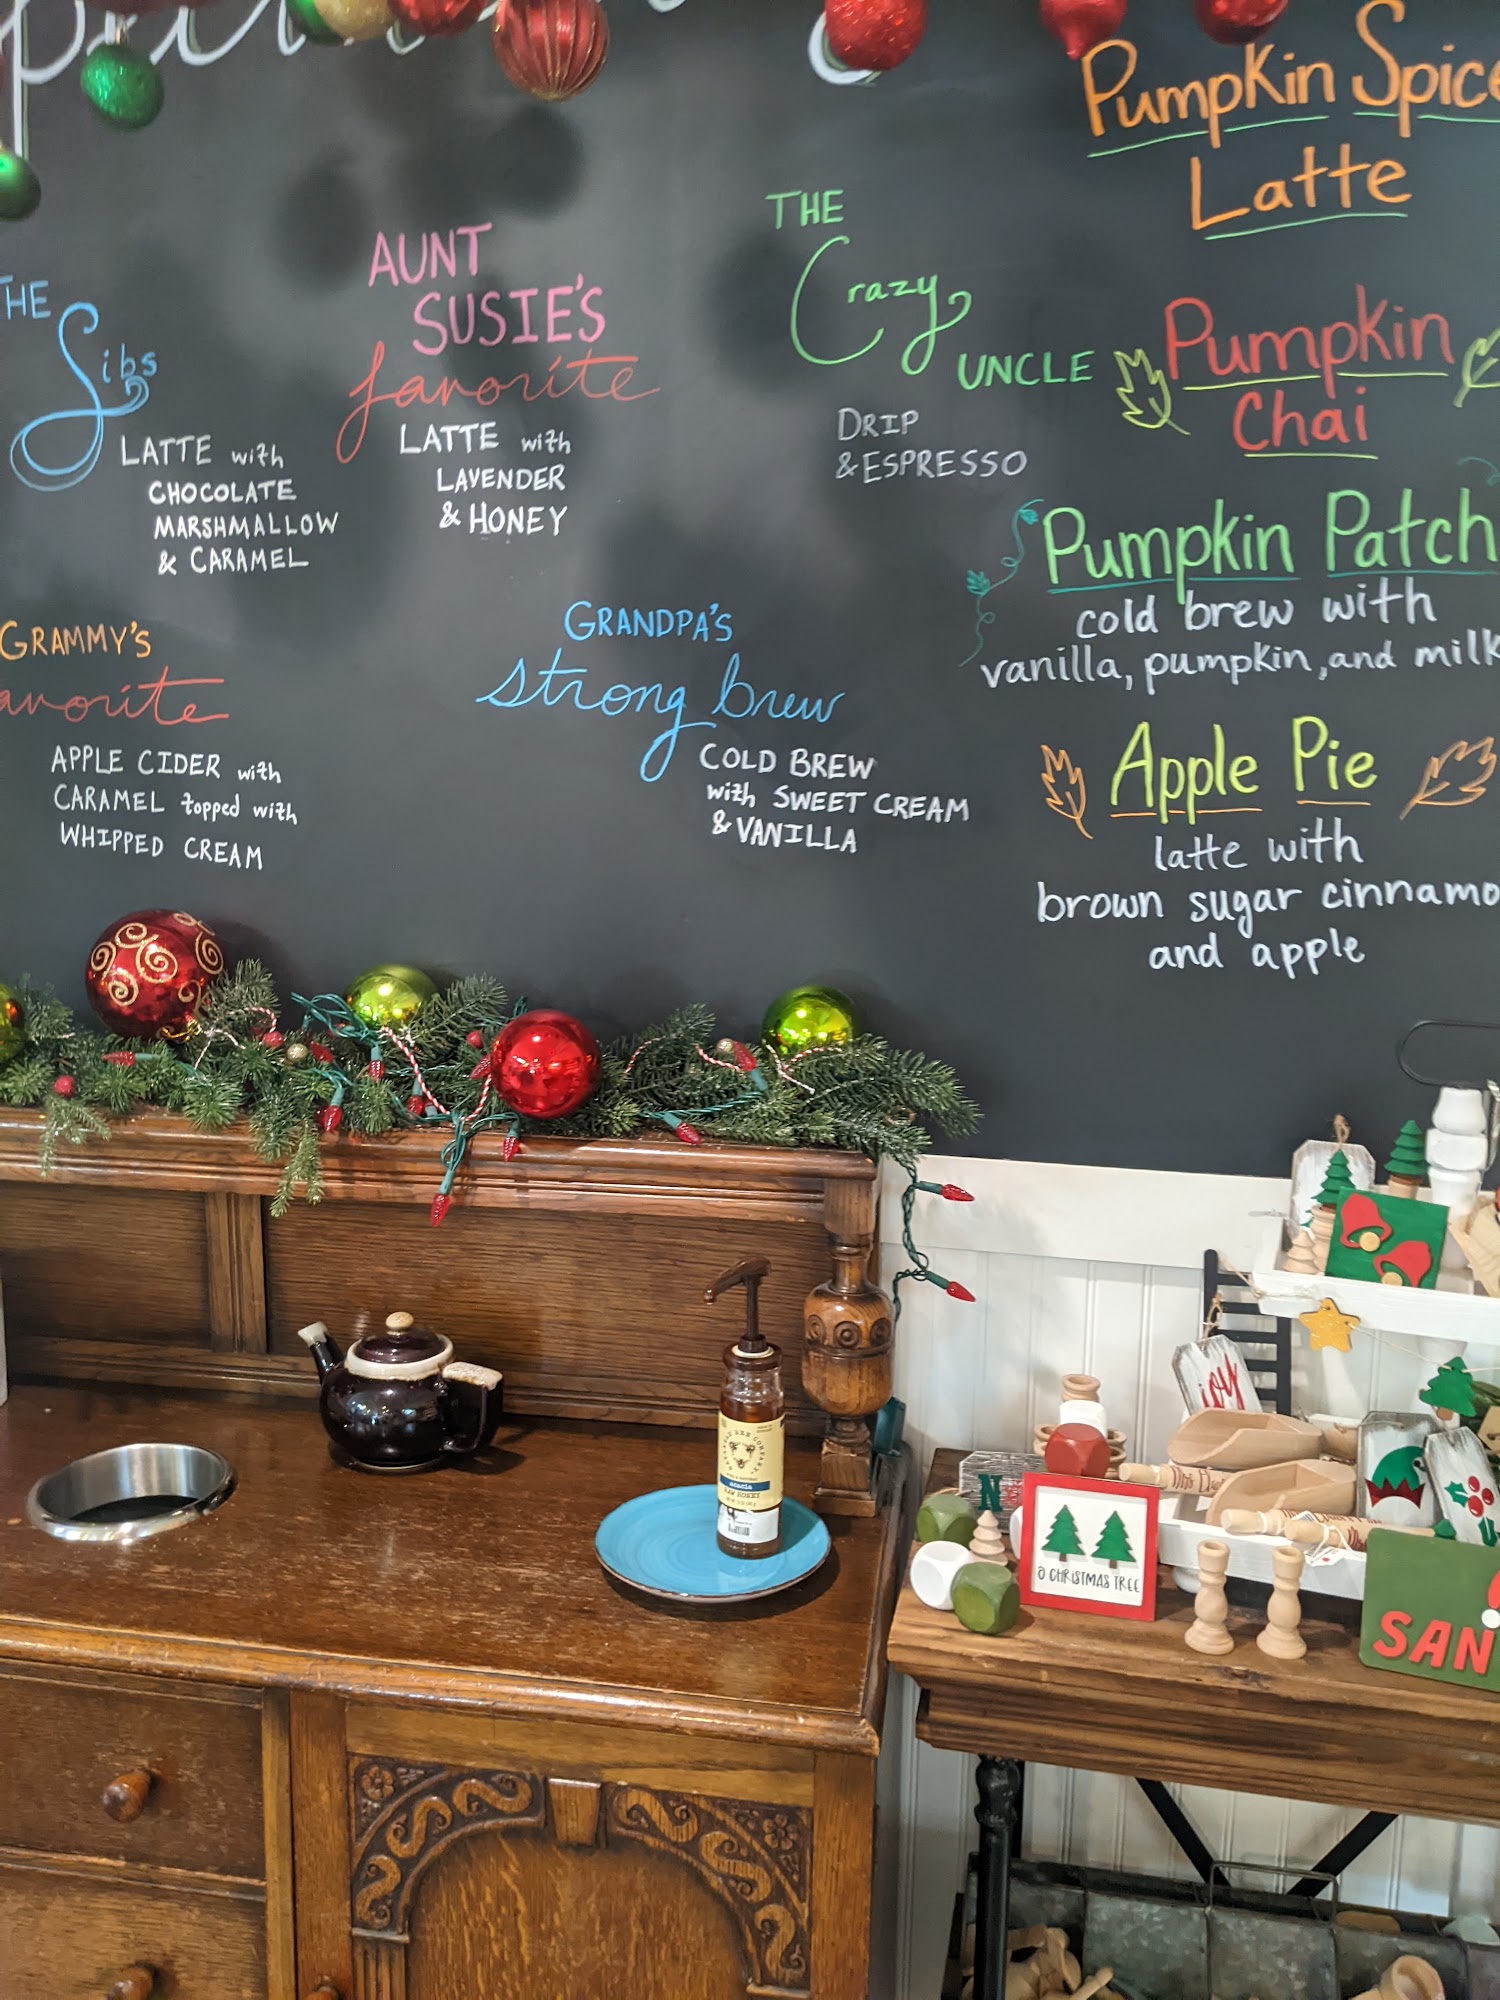 THE
Sibs
LATTE with
CHOCOLATE
MARSHMALLOW
& CARAMEL
AUNT
SUSIE'S
favorite
LATTE with
LAVENDER
& HONEY
THE
Crazy
UNCLE
DRIP
& ESPRESSO
GRAMMY'S
avorite
APPLE CIDER with
CARAMEL topped with
WHIPPED CREAM
GRANDPA'S
strong brew
COLD BREW
with SWEET CREAM
& VANILLA
Pumpkin Spice
Latte
Pumpkin
Chai
Pumpkin Patch
cold brew with
vanilla, pumpkin, and milk
Apple Pie
latte with
brown sugar cinnamo
and apple
acacia
RAW HONEY
joy
N
CHRISTMAS TREE
SAN